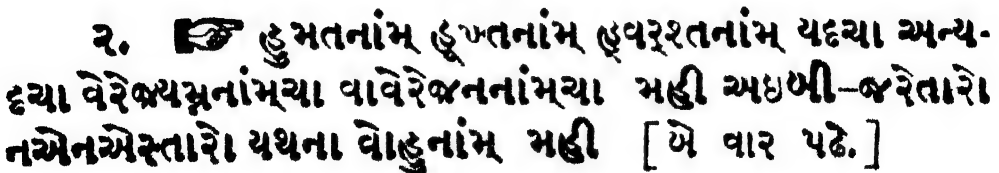 ૨. ☞ હુમતનાંમ્ હૂખ્તનાંમ્ હ્વર્‌શ્તનાંમ્ યદચા અન્ય-
દચા વેરેજ્યમ્નનાંમ્‌ચા વાવેરેજનનાંમ્‌ચા મહી અઇબી–જરેતારો
નએનએસ્તારો યથના વોહુનાંમ્ મહી [ બે વાર પઢે. ]